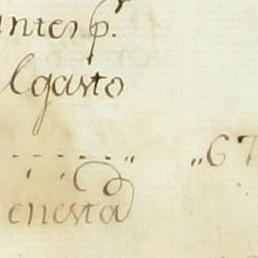 antes p.r
lgasto
- - - - - - - „ „67
enesta